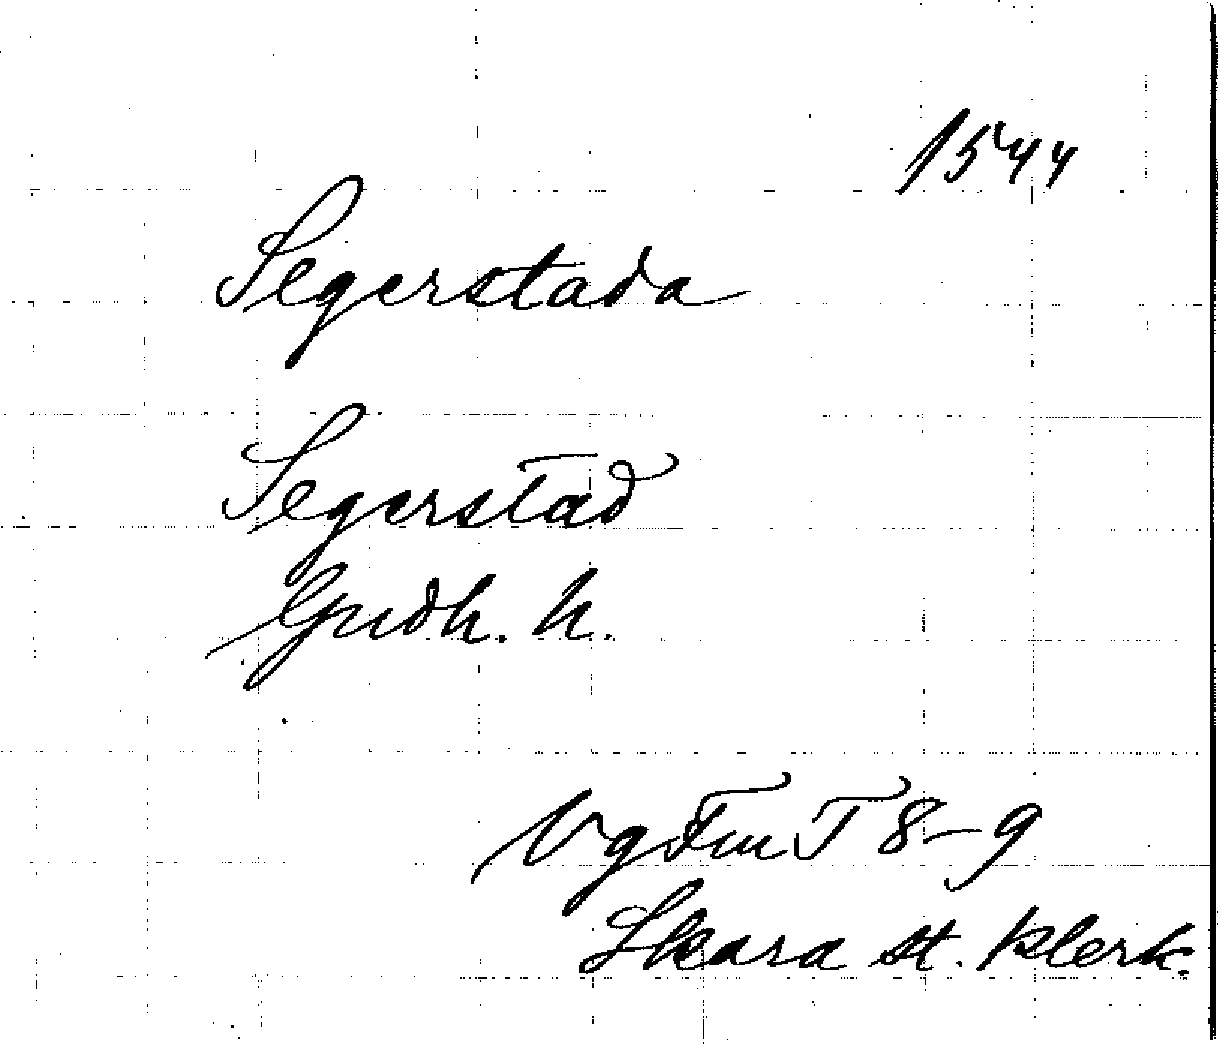 1544
Segerstada
Segerstad
Gudh. h.
Vg Fm T 8-9
Skara st. klerk.